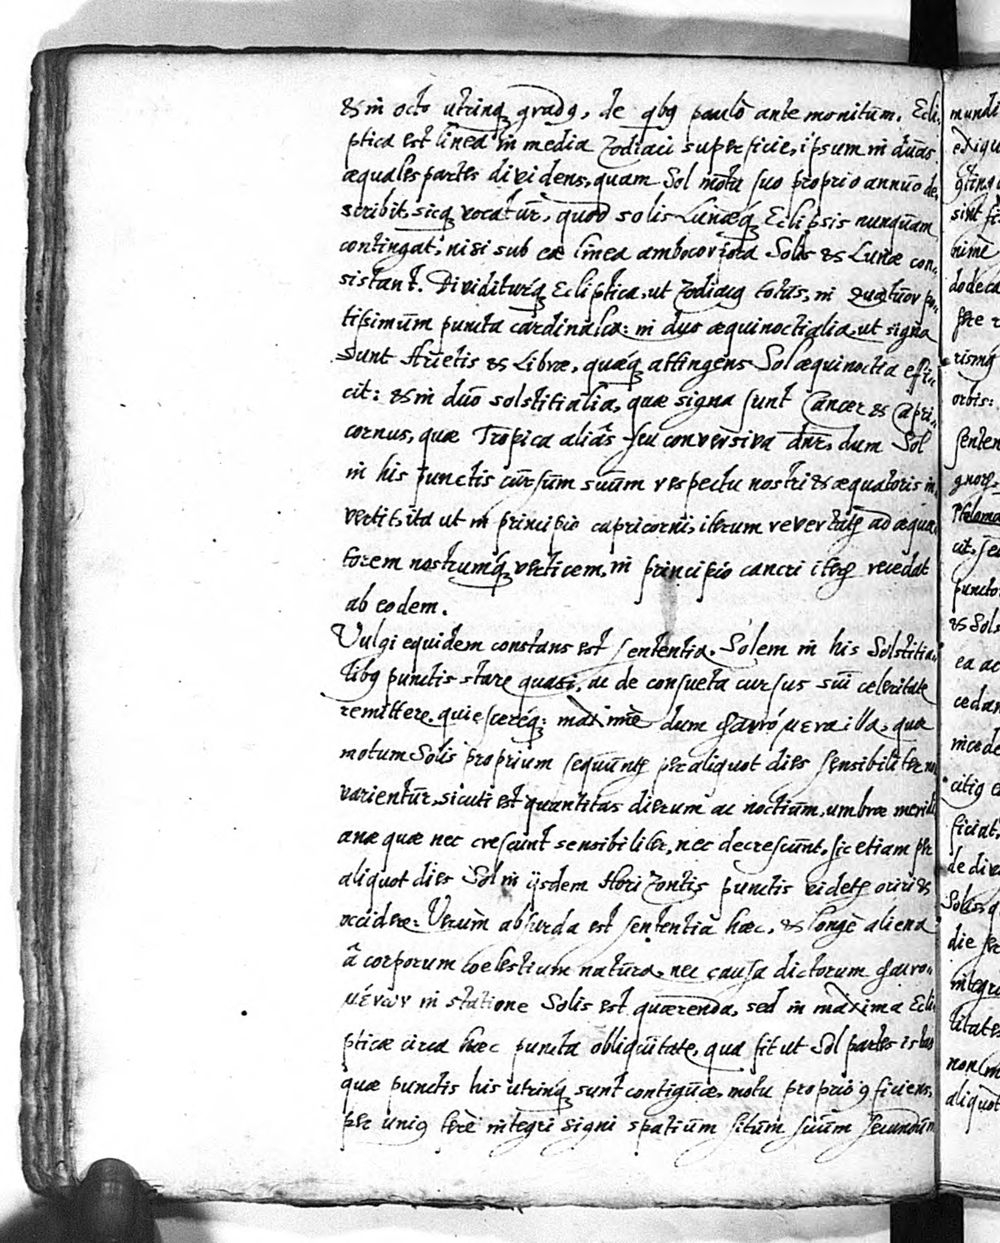 & in octo utrinq gradg, de qbg paulò ante monitum. Ecli-
ptica est linea in media Zodiaci superficie, ipsum in duas
æquales partes dividens, quam Sol motu suo proprio annuo de-
scribit, sicq vocatur, quod solis Lunæq Eclipsis nunquam
contingat, nisi sub ea linea ambo corpora Solis & Lunæ con-
sistant. Dividiturq Ecliptica, ut Zodiacg totus, in quatuor po-
tissimum puncta cardinalia: in duo æquinoctialia, ut signa
sunt Arietis & Libræ, quæq attingens Sol æquinoctia effi-
cit: & in duo solstitialia, quæ signa sunt Cancer & Capri-
cornus, quæ Tropica aliàs seu conversiva dnr, dum Sol
in his punctis cursum suum respectu nostri & æquatoris in-
vertit, ita ut in principio capricorni, iterum revertatr ad æqua-
torem nostrumq verticem, in principio cancri iterū recedat
ab eodem.
Vulgi equidem constans est sententia, Solem in his Solstitia-
libg punctis stare quasi, ac de consueta cursus sui celeritate
remittere, quiescereq: maximè dum φαινόμενα illa, quæ
motum Solis proprium sequuntr per aliquot dies sensibiliter non
varientur, sicuti est quantitas dierum ac noctium, umbræ meridi-
anæ quæ nec crescunt sensibiliter, nec decrescunt, sic etiam per
aliquot dies Sol in ijsdem Horizontis punctis videtr oriri &
occidere. Verùm absurda est sententia hæc, & longè aliena
à corporum coelestium natura, nec causa dictorum φαινο-
μένων in statione Solis est quærenda, sed in maxima Ecli-
pticæ circa hæc puncta obliquitate, qua fit ut Sol partes istas
quæ punctis his utrinq sunt contiguæ, motu proprio 9ficiens,
per unig ferè integri signi spatium situm suum secundum
mundi
exiqu
sint
nime
dodeca
fere
rismq
orbis:
senten
gnor
Ptolomæ
cit, se
puncto
& Sols
ea ac
cedan
citig
ficiat,
de div
Solis, q
die per
integra
litates
non
aliquot